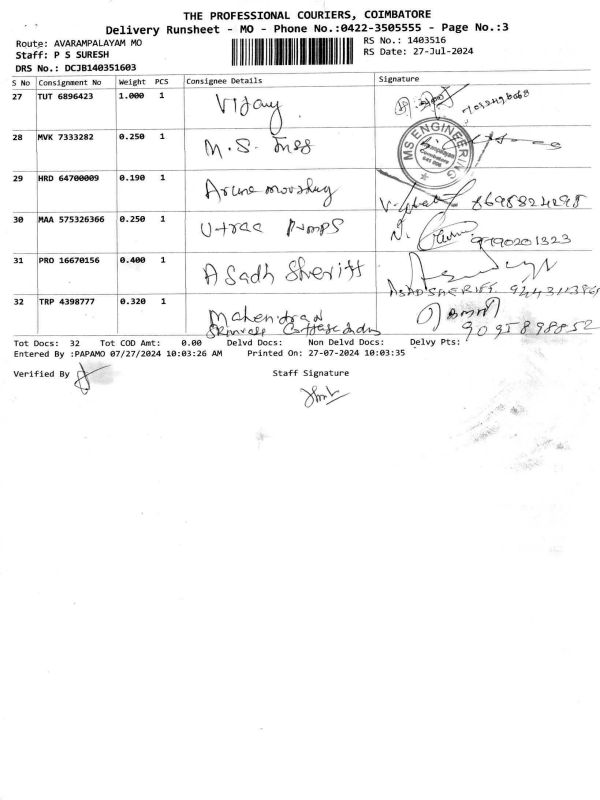 THE PROFESSIONAL COURIERS, COIMBATORE
Delivery Runsheet - MO - Phone No.:0422-3505555 - Page No.:3
Route: AVARAMPALAYAM MO
Staff: P S SURESH
DRS No.: DCJB140351603
RS No.: 1403516
RS Date: 27-Jul-2024
S No Consignment No Weight PCS Consignee Details Signature
27 TUT 6896423 1.000 1 Vijay
28 MVK 7333282 0.250 1 M.S. Engg
MS ENGINEERING
Coimbatore
29 HRD 64700009 0.190 1
8698824298
30 MAA 575326366 0.250 1 Utraa Pumps
9790201323
31 PRO 16670156 0.400 1 Asadh Sheriff
ASADSHERIFF
32 TRP 4398777 0.320 1 Mahendran
9095898852
Tot Docs: 32 Tot COD Amt: 0.00 Delvd Docs: Non Delvd Docs: Delvy Pts:
Entered By :PAPAMO 07/27/2024 10:03:26 AM Printed On: 27-07-2024 10:03:35
Verified By
Staff Signature